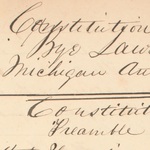 Constitution
Bye Laws
Michigan
Constitut
Preamble